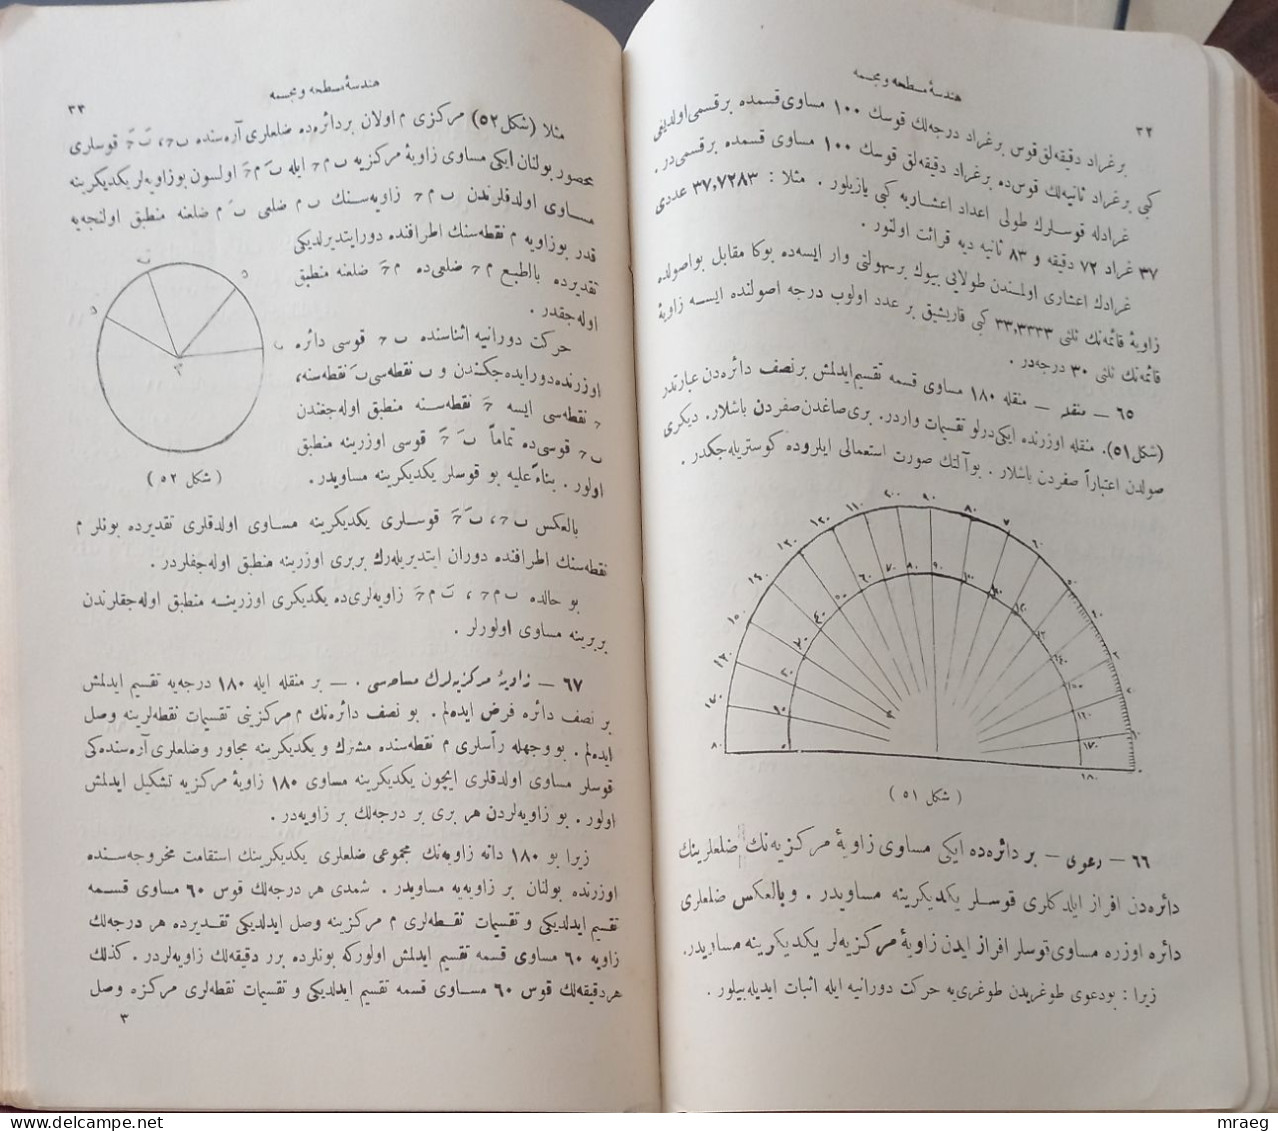 هندسهٔ مسطحه و مجسمه
٣٢
بر غراد دقیقه‌لق قوس بر غراد درجه‌لك قوسك ١٠٠ مساوی قسمده بر قسمی اولدیغی
كبی بر غراد ثانیه‌لك قوس‌ده بر غراد دقیقه‌لق قوسك ١٠٠ مساوی قسمده بر قسمی‌در .
غرادله قوسلرك طولی اعداد اعشاریه كبی یازیلور . مثلا : ٣٧,٧٢٨٣ عددی
٣٧ غراد ٧٢ دقیقه و ٨٣ ثانیه دیه قرائت اولنور .
غرادك اعشاری اولمندن طولایی بیوك بر سهولتی وار ایسه‌ده بوكا مقابل بو اصولده
زاویهٔ قائمه‌نك ثلثی ٣٣,٣٣٣٣ كبی قاریشیق بر عدد اولوب درجه اصولنده ایسه زاویهٔ
قائمه‌نك ثلثی ٣٠ درجه‌در .
٦٥ — منقله — منقله ١٨٠ مساوی قسمه تقسیم ایدلمش بر نصف دائره‌دن عبارتدر
(شكل ٥١). منقله اوزرنده ایكی درلو تقسیمات واردر. بری صاغدن صفردن باشلار. دیكری
صولدن اعتباراً صفردن باشلار . بو آلتك صورت استعمالی ایلروده كوستریله‌جكدر .
( شكل ٥١ )
٦٦ — دعوی — بر دائره‌ده ایكی مساوی زاویهٔ مركزیه‌نك ضلعلرینك
دائره‌دن افراز ایلدكلری قوسلر یكدیكرینه مساویدر . وبالعكس ضلعلری
دائره اوزره مساوی قوسلر افراز ایدن زاویهٔ مركزیه‌لر یكدیكرینه مساویدر.
زیرا : بودعوی طوغریدن طوغری‌یه حركت دورانیه ایله اثبات ایدیله‌بیلور .
هندسهٔ مسطحه و مجسمه
٣٣
مثلا (شكل ٥٢) مركزی م اولان بر دائره‌ده ضلعلری آره‌سنده ب‍ح ، بَ‍حَ قوسلری
محصور بولنان ایكی مساوی زاویهٔ مركزیه ب‍م‍ح ایله بَ‍م‍حَ اولسون بوزاویه‌لر یكدیكرینه
مساوی اولدقلرندن ب‍م‍ح زاویه‌سنك ب‍م ضلعی بَ‍م ضلعنه منطبق اولنجه‌یه
قدر بوزاویه م نقطه‌سنك اطرافنده دور ایتدیرلدیكی
تقدیرده بالطبع م‍ح ضلعی‌ده م‍حَ ضلعنه منطبق
اوله‌جقدر .
حركت دورانیه اثناسنده ب‍ح قوسی دائره
اوزرنده دور ایده‌جكندن و ب نقطه‌سی بَ نقطه‌سنه،
ح نقطه‌سی ایسه حَ نقطه‌سنه منطبق اوله‌جغندن
ب‍ح قوسی‌ده تماماً بَ‍حَ قوسی اوزرینه منطبق
اولور . بناءً علیه بو قوسلر یكدیكرینه مساویدر.
( شكل ٥٢ )
بالعكس ب‍ح ، بَ‍حَ قوسلری یكدیكرینه مساوی اولدقلری تقدیرده بونلر م
نقطه‌سنك اطرافنده دوران ایتدیریله‌رك بربری اوزرینه منطبق اوله‌جقلردر .
بو حالده ب‍م‍ح ، بَ‍م‍حَ زاویه‌لری‌ده یكدیكری اوزرینه منطبق اوله‌جقلرندن
بربرینه مساوی اولورلر .
٦٧ — زاویهٔ مركزیه‌لرك مساحه‌سی . — بر منقله ایله ١٨٠ درجه‌یه تقسیم ایدلمش
بر نصف دائره فرض ایده‌لم . بو نصف دائره‌نك م مركزینی تقسیمات نقطه‌لرینه وصل
ایده‌لم . بووجهله رأسلری م نقطه‌سنده مشترك و یكدیكرینه مجاور وضلعلری آره‌سنده‌كی
قوسلر مساوی اولدقلری ایچون یكدیكرینه مساوی ١٨٠ زاویهٔ مركزیه تشكیل ایدلمش
اولور . بو زاویه‌لردن هر بری بر درجه‌لك بر زاویه‌در .
زیرا بو ١٨٠ دانه زاویه‌نك مجموعی ضلعلری یكدیكرینك استقامت مخروجه‌سنده
اوزرنده بولنان بر زاویه‌یه مساویدر. شمدی هر درجه‌لك قوس ٦٠ مساوی قسمه
تقسیم ایدلدیكی و تقسیمات نقطه‌لری م مركزینه وصل ایدلدیكی تقدیرده هر درجه‌لك
زاویه ٦٠ مساوی قسمه تقسیم ایدلمش اولوركه بونلرده برر دقیقه‌لك زاویه‌لردر . كذلك
هر دقیقه‌لك قوس ٦٠ مساوی قسمه تقسیم ایدلدیكی و تقسیمات نقطه‌لری مركزه وصل
٣
delcampe.net
mraeg